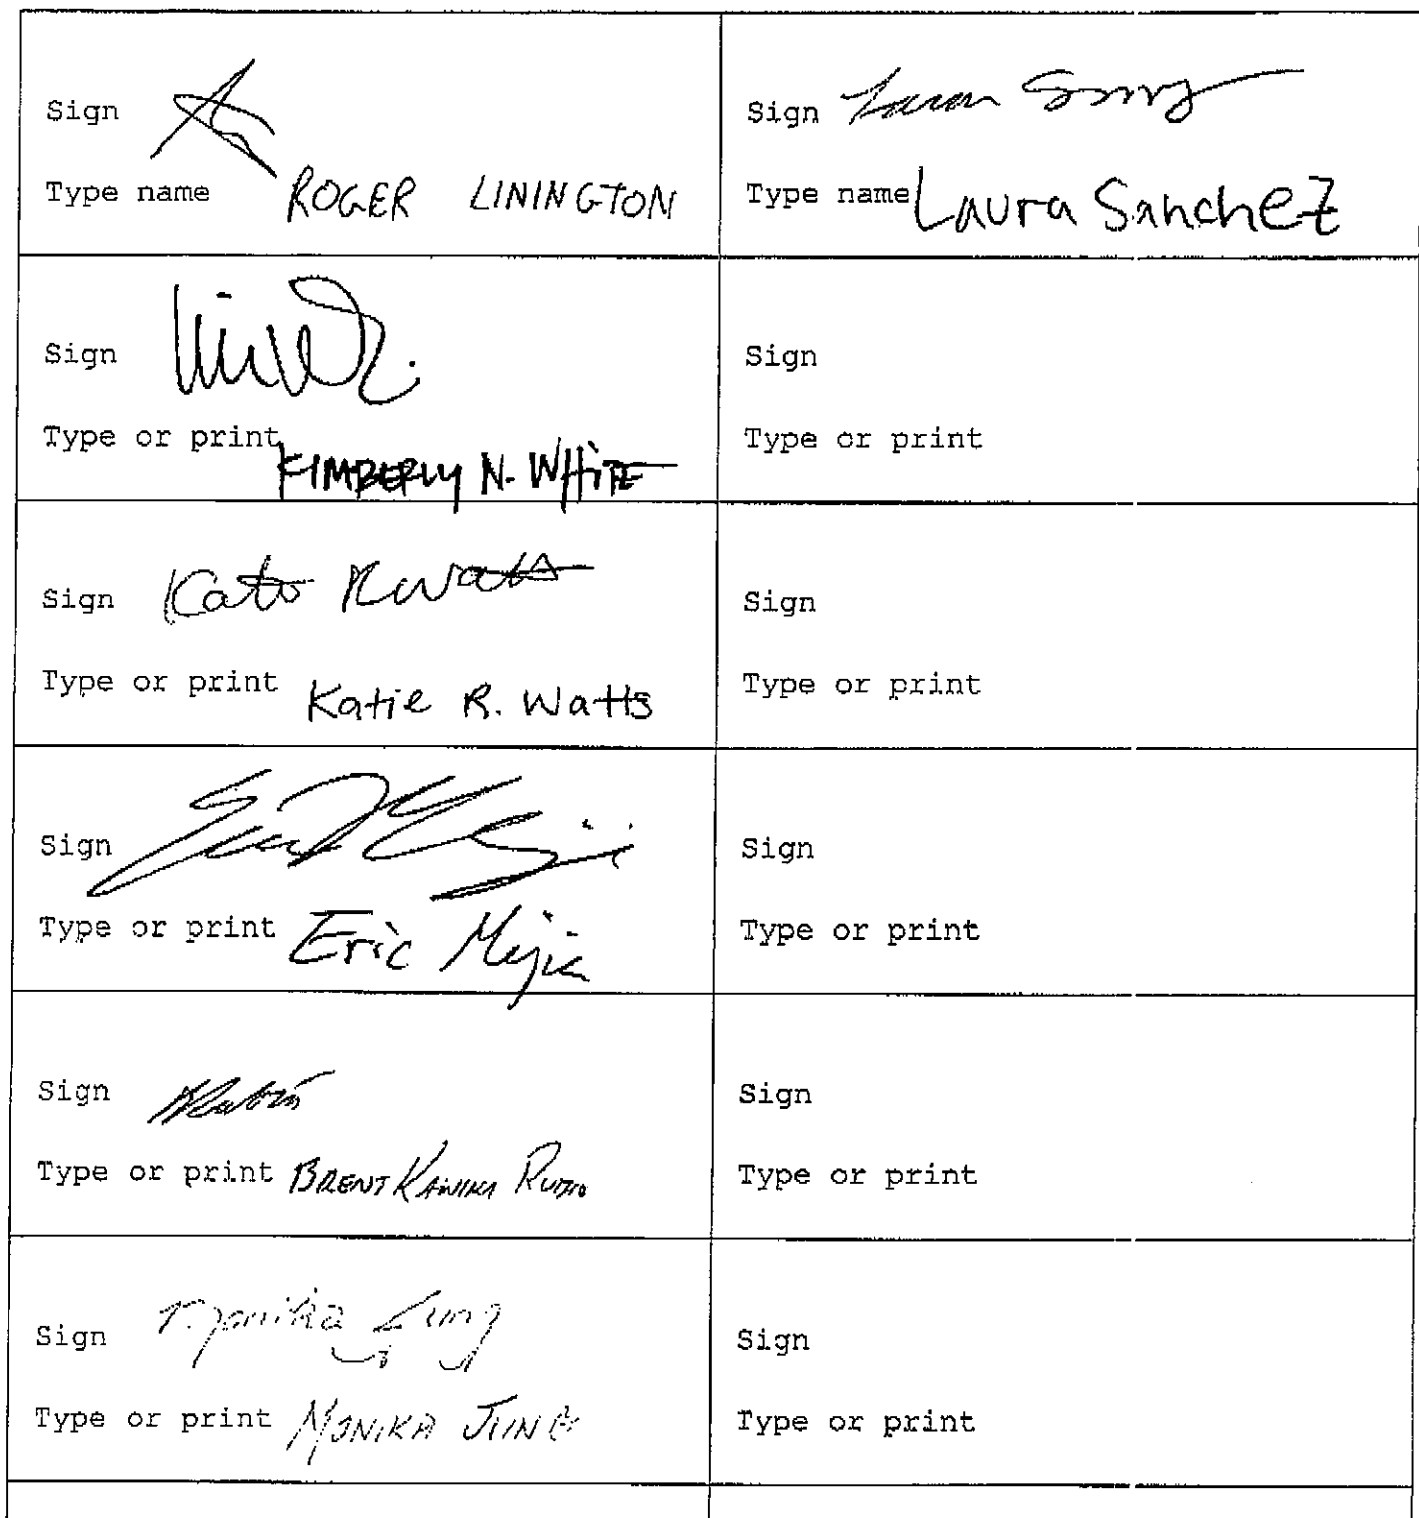 Sign
Type name ROGER LININGTON
Sign Laura
Type name Laura Sanchez
Sign
Type or print KIMBERLY N. WHITE
Sign
Type or print
Sign Katie R Watts
Type or print Katie R. Watts
Sign
Type or print
Sign Eric Mejia
Type or print Eric Mejia
Sign
Type or print
Sign Rubio
Type or print BRENT KAWIKA RUBIO
Sign
Type or print
Sign Monika Jung
Type or print MONIKA JUNG
Sign
Type or print